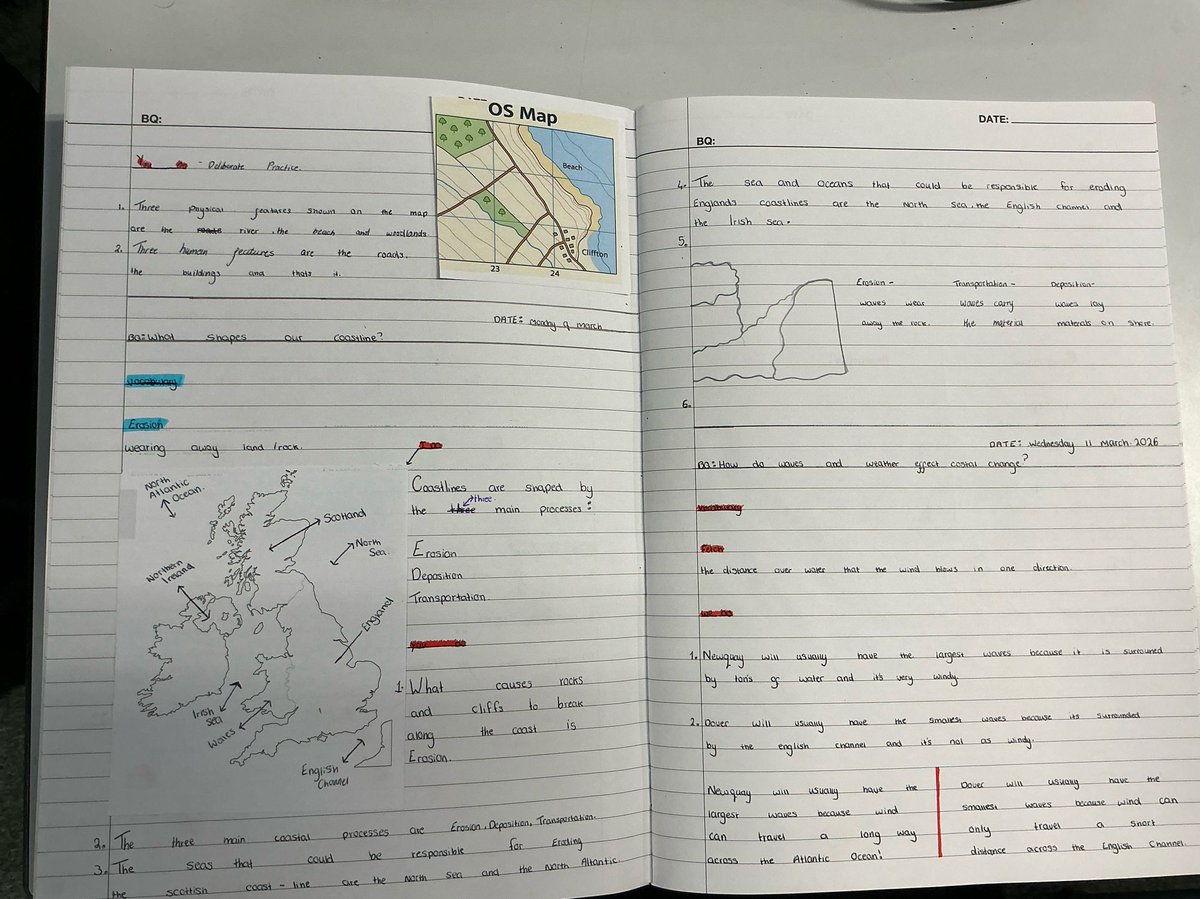 BQ:
- Deliberate Practice.
OS Map
Beach
Cliffton
23
24
1. Three pysical featuses shown on the map
are the river, the beach and woodlands
2. Three human features are the roads,
the buildings and thats it.
DATE: Monday 9 march
BQ: What shapes our coastline?
vocabulary
Erosion
wearing away land/rock.
North
Atlantic
Ocean.
Scotland
North
Sea.
Northern
Ireland
England
Irish
Sea
Wales
English
Channel
Coastlines are shaped by
three
the three main processes:
Erosion
Deposition
Transportation.
1. What causes rocks
and cliffs to break
along the coast is
Erosion.
2. The three main coastal processes are Erosion, Deposition, Transportation.
3. The seas that could be responsible for Eroding
the scottish coast-line are the North Sea and the North Altantic.
DATE:
BQ:
4. The sea and oceans that could be responsible for eroding
Englands coastlines are the North Sea, the English channel and
the Irish sea.
5.
Erosion -
waves wear
away the rock.
Transportation -
waves carry
the material
Deposition-
waves lay
materials on shore.
6.
DATE: Wednesday 11 March 2026
BQ: How do waves and weather effect costal change?
vocabulary
Fetch
the distance over water that the wind blows in one direction.
1. Newquay will usually have the largest waves because it is surrouned
by ton's of water and it's very windy.
2. Dover will usually have the smallest waves because its surrounded
by the english channel and it's not as windy.
Newquay will usually have the
largest waves because wind
can travel a long way
across the Atlantic Ocean!
Dover will usually have the
smallest waves because wind can
only travel a short
distance across the English Channel